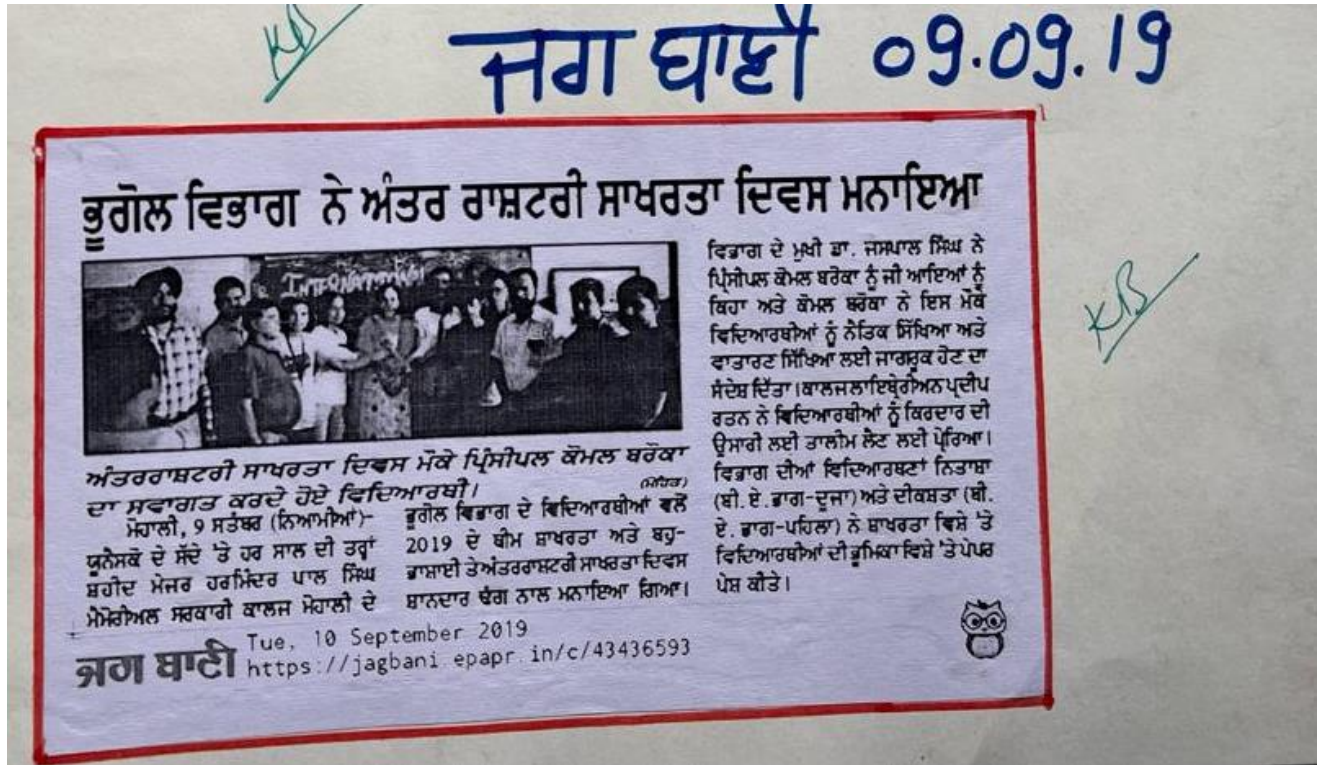 KB
ਜਗ ਬਾਣੀ 09.09.19
ਭੂਗੋਲ ਵਿਭਾਗ ਨੇ ਅੰਤਰ ਰਾਸ਼ਟਰੀ ਸਾਖਰਤਾ ਦਿਵਸ ਮਨਾਇਆ
INTERNATIONAL
ਅੰਤਰਰਾਸ਼ਟਰੀ ਸਾਖਰਤਾ ਦਿਵਸ ਮੌਕੇ ਪ੍ਰਿੰਸੀਪਲ ਕੋਮਲ ਬਰੋਕਾ
ਦਾ ਸਵਾਗਤ ਕਰਦੇ ਹੋਏ ਵਿਦਿਆਰਥੀ।
ਮੋਹਾਲੀ, 9 ਸਤੰਬਰ (ਨਿਆਮੀਆਂ)-
ਯੂਨੈਸਕੋ ਦੇ ਸੱਦੇ 'ਤੇ ਹਰ ਸਾਲ ਦੀ ਤਰ੍ਹਾਂ
ਸ਼ਹੀਦ ਮੇਜਰ ਹਰਮਿੰਦਰ ਪਾਲ ਸਿੰਘ
ਮੈਮੋਰੀਅਲ ਸਰਕਾਰੀ ਕਾਲਜ ਮੋਹਾਲੀ ਦੇ
ਭੂਗੋਲ ਵਿਭਾਗ ਦੇ ਵਿਦਿਆਰਥੀਆਂ ਵਲੋਂ
2019 ਦੇ ਥੀਮ ਸ਼ਾਖਰਤਾ ਅਤੇ ਬਹੁ-
ਭਾਸ਼ਾਈ ਤੇ ਅੰਤਰਰਾਸ਼ਟਰੀ ਸਾਖਰਤਾ ਦਿਵਸ
ਸ਼ਾਨਦਾਰ ਢੰਗ ਨਾਲ ਮਨਾਇਆ ਗਿਆ।
ਵਿਭਾਗ ਦੇ ਮੁਖੀ ਡਾ. ਜਸਪਾਲ ਸਿੰਘ ਨੇ
ਪ੍ਰਿੰਸੀਪਲ ਕੋਮਲ ਬਰੋਕਾ ਨੂੰ ਜੀ ਆਇਆਂ ਨੂੰ
ਕਿਹਾ ਅਤੇ ਕੋਮਲ ਬਰੋਕਾ ਨੇ ਇਸ ਮੌਕੇ
ਵਿਦਿਆਰਥੀਆਂ ਨੂੰ ਨੈਤਿਕ ਸਿੱਖਿਆ ਅਤੇ
ਵਾਤਾਰਣ ਸਿੱਖਿਆ ਲਈ ਜਾਗਰੂਕ ਹੋਣ ਦਾ
ਸੰਦੇਸ਼ ਦਿੱਤਾ। ਕਾਲਜ ਲਾਇਬ੍ਰੇਰੀਅਨ ਪ੍ਰਦੀਪ
ਰਤਨ ਨੇ ਵਿਦਿਆਰਥੀਆਂ ਨੂੰ ਕਿਰਦਾਰ ਦੀ
ਉਸਾਰੀ ਲਈ ਤਾਲੀਮ ਲੈਣ ਲਈ ਪ੍ਰੇਰਿਆ।
ਵਿਭਾਗ ਦੀਆਂ ਵਿਦਿਆਰਥਣਾਂ ਨਿਤਾਸ਼ਾ
(ਬੀ. ਏ. ਭਾਗ-ਦੂਜਾ) ਅਤੇ ਦੀਕਸ਼ਤਾ (ਬੀ.
ਏ. ਭਾਗ-ਪਹਿਲਾ) ਨੇ ਸ਼ਾਖਰਤਾ ਵਿਸ਼ੇ 'ਤੇ
ਵਿਦਿਆਰਥੀਆਂ ਦੀ ਭੂਮਿਕਾ ਵਿਸ਼ੇ 'ਤੇ ਪੇਪਰ
ਪੇਸ਼ ਕੀਤੇ।
KB
ਜਗ ਬਾਣੀ
Tue, 10 September 2019
https://jagbani.epapr.in/c/43436593